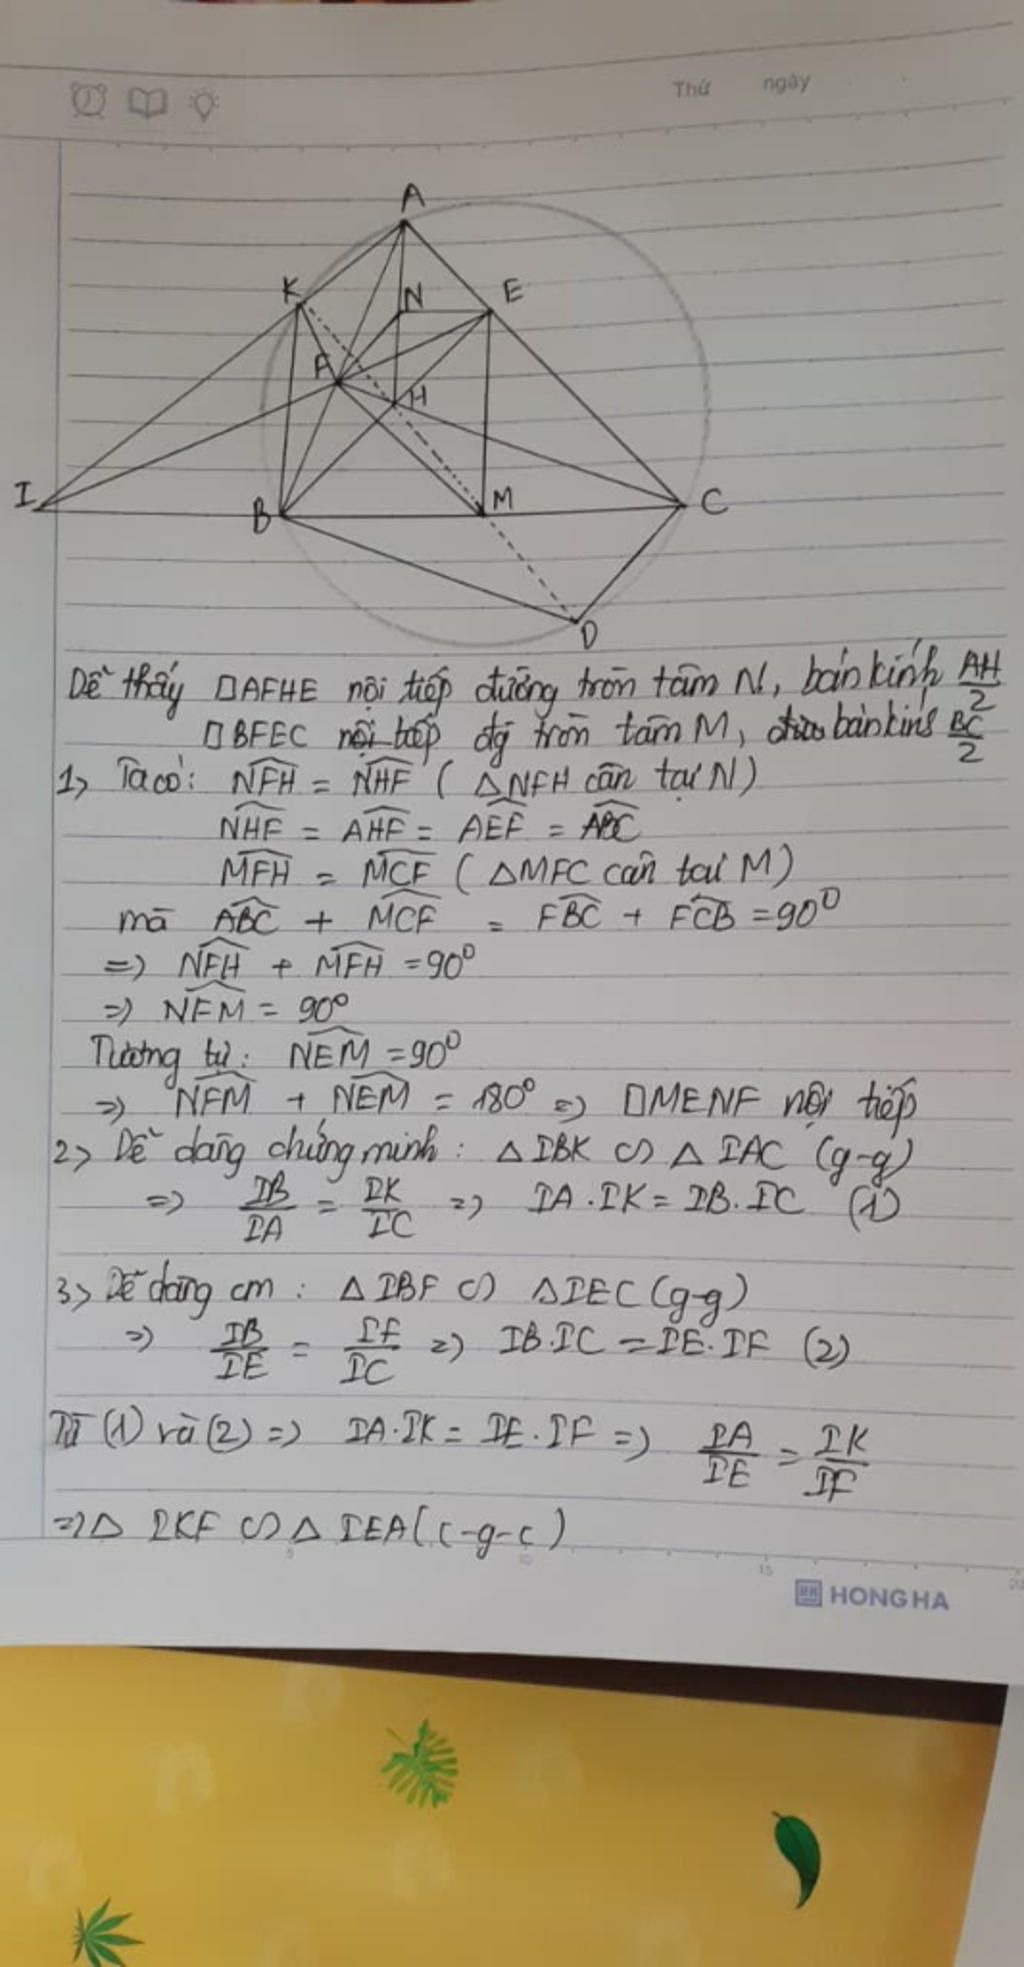 Thứ ngày
A
K
N
E
F
H
I
B
M
C
D
Dễ thấy □AFHE nội tiếp đường tròn tâm N, bán kính AH/2
□BFEC nội tiếp đg tròn tâm M, bán kính BC/2
1> Ta có: NFH = NHF (△NFH cân tại N)
NHF = AHF = AEF = ABC
MFH = MCF (△MFC cân tại M)
mà ABC + MCF = FBC + FCB = 90⁰
=> NFH + MFH = 90⁰
=> NFM = 90⁰
Tương tự: NEM = 90⁰
=> NFM + NEM = 180⁰ => □MENF nội tiếp
2> Dễ dàng chứng minh: △IBK ∽ △IAC (g-g)
=> IB/IA = IK/IC => IA.IK = IB.IC (1)
3> Dễ dàng cm: △IBF ∽ △IEC (g-g)
=> IB/IE = IF/IC => IB.IC = IE.IF (2)
Từ (1) và (2) => IA.IK = IE.IF => IA/IE = IK/IF
=> △IKF ∽ △IEA (c-g-c)
5 10 15 20
HONG HA